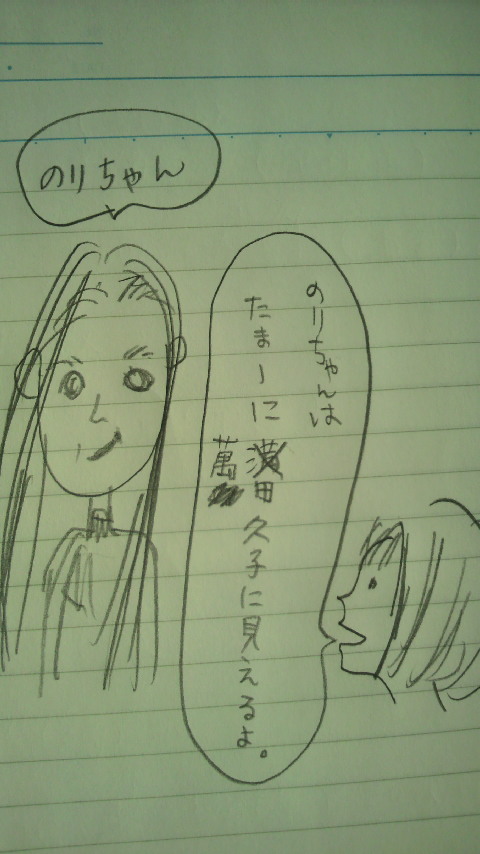 のりちゃん
のりちゃんは
たまーに萬田久子に見えるよ。